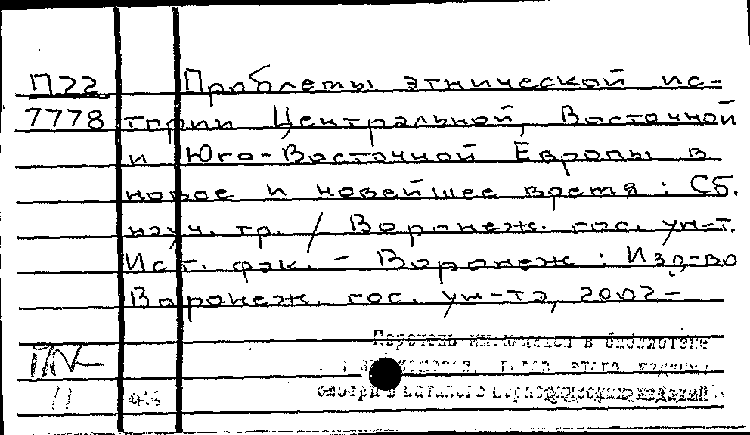 П22 Проблемы этнической ис-
7778 тории Центральной, Восточной
и Юго-Восточной Европы в
новое и новейшее время : Сб.
науч. тр. / Воронеж. гос. ун-т.
Ист. фак. - Воронеж : Изд-во
Воронеж. гос. ун-та, 2002-
Перечень имеющихся в библиотеке
смотри в каталоге